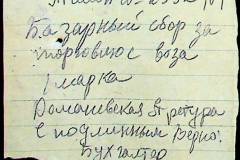 Базарный сбор за
торговлю с воза
1 марка
Доманевская
с подлинным верно:
Бухгалтер